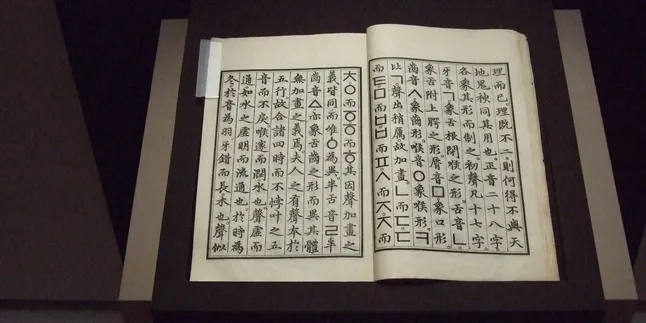 理而已。理旣不二。則何得不與天
地鬼神同其用也。正音二十八字。
各象其形而制之。初聲凡十七字。
牙音ㄱ。象舌根閉喉之形。舌音ㄴ。
象舌附上腭之形。脣音ㅁ。象口形。
齒音ㅅ。象齒形。喉音ㅇ。象喉形。ㅋ
比ㄱ。聲出稍厲。故加畫。ㄴ而ㄷ。ㄷ
而ㅌ。ㅁ而ㅂ。ㅂ而ㅍ。ㅅ而ㅈ。ㅈ而
ㅊ。ㅇ而ㆆ。ㆆ而ㅎ。其因聲加畫之
義皆同。而唯ㆁ為異。半舌音ㄹ。半
齒音ㅿ。亦象舌齒之形而異其體。
無加畫之義焉。夫人之有聲本於
五行。故合諸四時而不悖。叶之五
音而不戾。喉邃而潤。水也。聲虛而
通。如水之虛明而流通也。於時為
冬。於音為羽。牙錯而長。木也。聲似